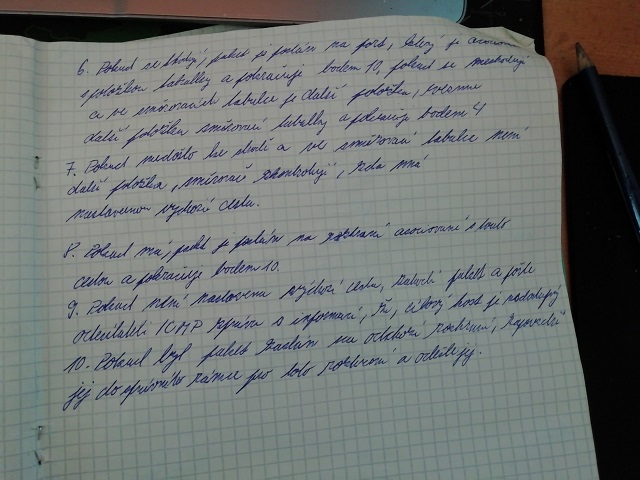 6. Pokud se shodují, paket je poslán na port, který je asociován
s položkou tabulky a pokračuje bodem 10, pokud se neshodují
a ve směrovací tabulce je další položka, vezme
další položku směrovací tabulky a pokračuje bodem 4
7. Pokud nedošlo ke shodě a ve směrovací tabulce není
další položka, směrovač zkontroluje, zda má
nastavenou výchozí cestu.
8. Pokud má, paket je poslán na rozhraní asociované s touto
cestou a pokračuje bodem 10.
9. Pokud není nastavena výchozí cesta, zahodí paket a pošle
odesílateli ICMP zprávu s informací, že cílový host je nedostupný
10. Pokud byl paket zaslán na odchozí rozhraní,
jej do správného rámce pro toto rozhraní a odešle jej.